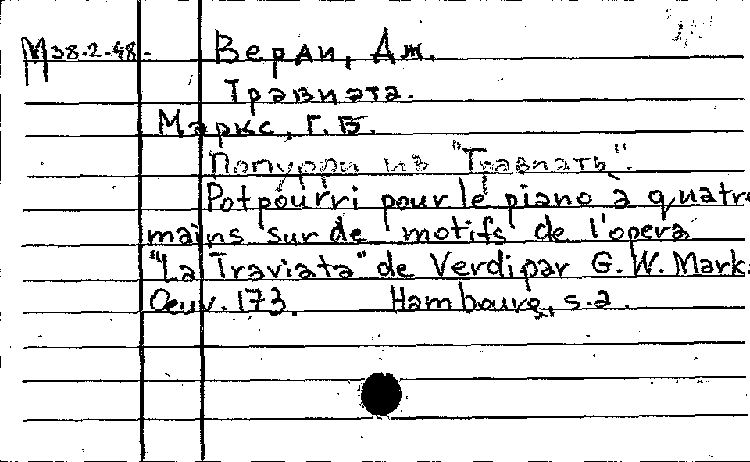 М 38-2-48- Верди, Дж.
Травиата.
Маркс, Г. В.
Попурри из "Травиаты".
Potpourri pour le piano à quatre
mains sur de motifs de l'opera
"La Traviata" de Verdi par G. W. Mark
Oeuv. 173. Hambourg, s.a.